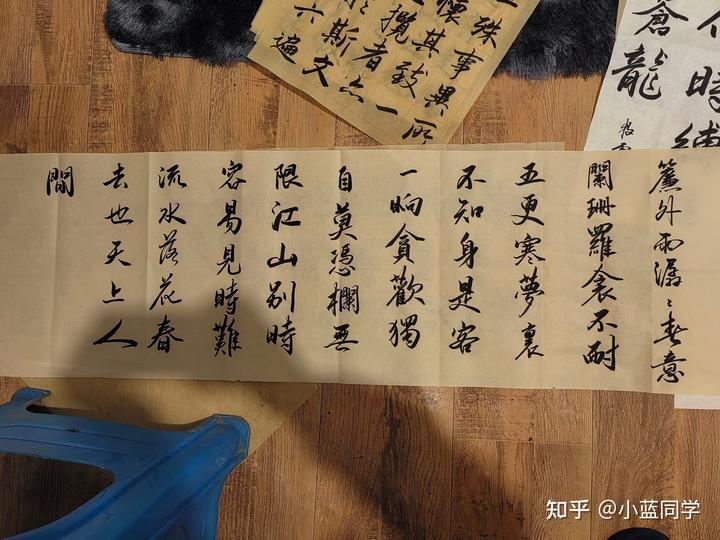 殊事異所
懷其致一
攬者亦
斯文
六遍
時縛
蒼龍
簾外雨潺〻春意
闌珊羅衾不耐
五更寒夢裏
不知身是客
一晌貪歡獨
自莫憑欄無
限江山别時
容易見時難
流水落花春
去也天上人
間
知乎 @小蓝同学